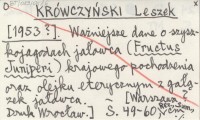 KRÓWCZYŃSKI Leszek
[1953?]. Ważniejsze dane o szysz-
kojagodach jałowca (Fructus
Juniperi) krajowego pochodzenia
oraz olejku eterycznym z gałą-
zek jałowca. – [Warszawa
Druk. Wrocław]. S. 49-60